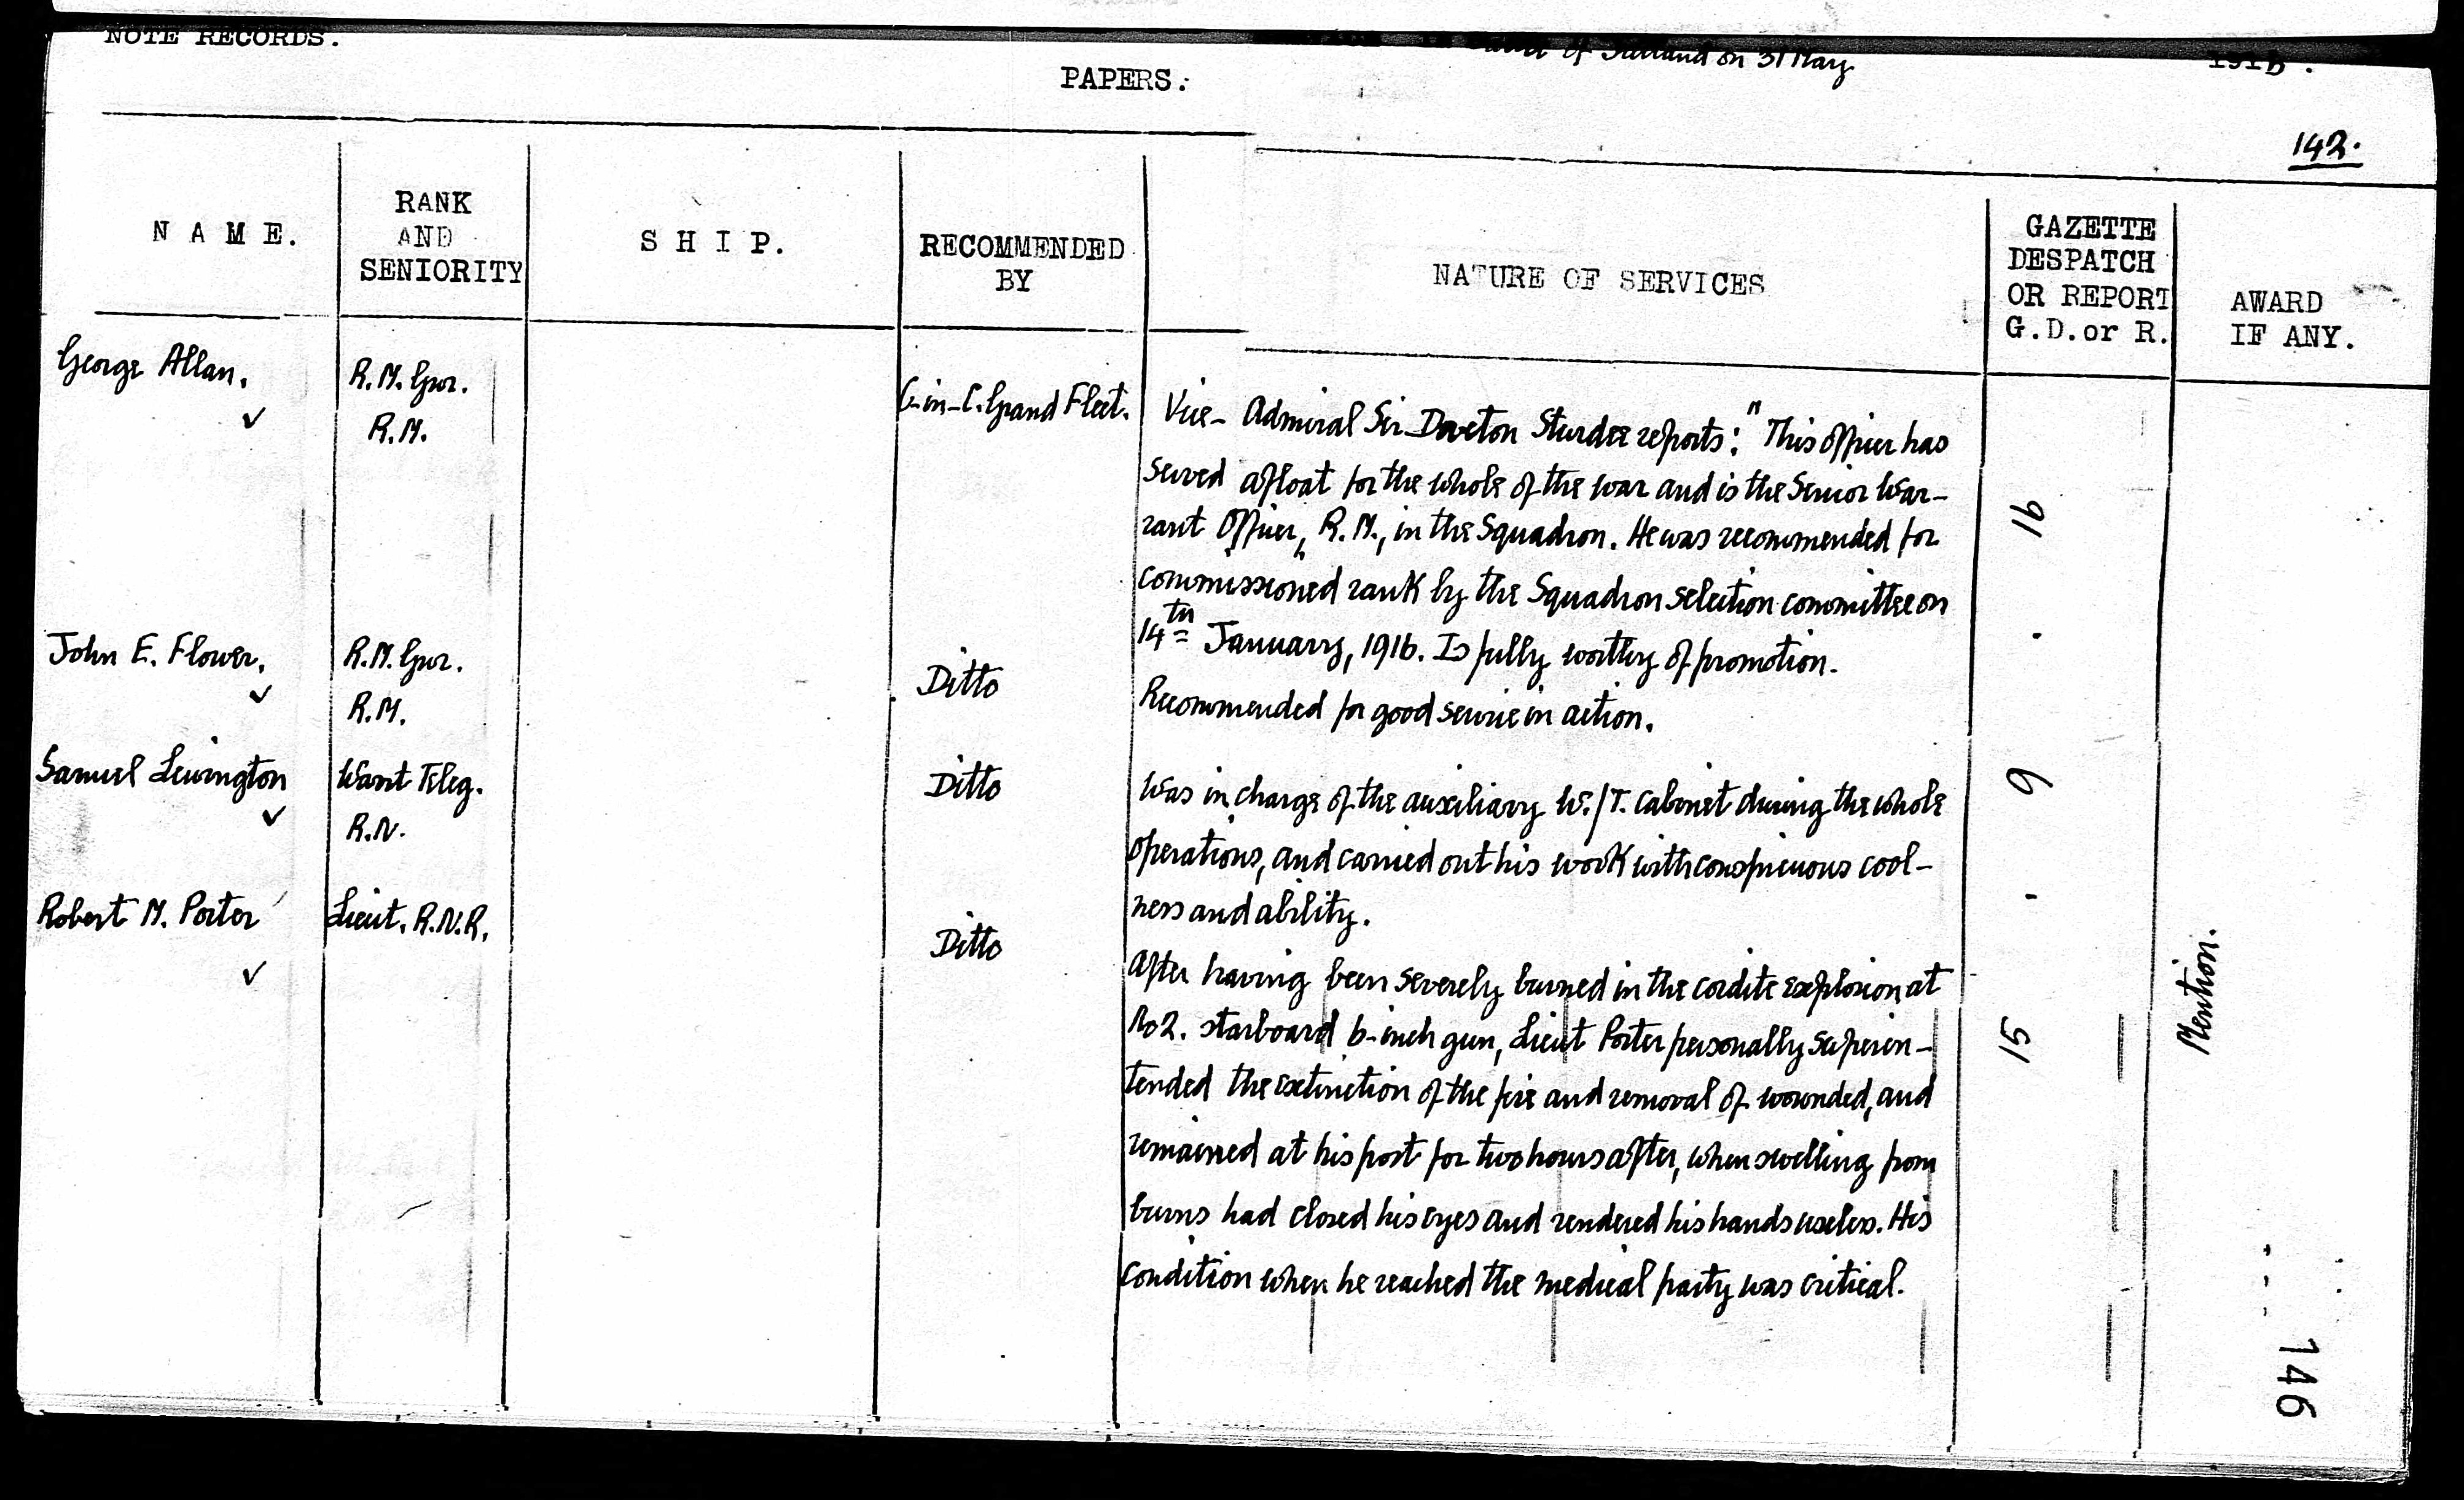 NOTE RECORDS.
of Jutland on 31 May
1916.
PAPERS:
142.
NAME.
RANK AND SENIORITY
SHIP.
RECOMMENDED BY
NATURE OF SERVICES
GAZETTE DESPATCH OR REPORT G.D. or R.
AWARD IF ANY.
George Allan.
R.M. Gnr.
R.M.
C-in-C. Grand Fleet.
Vice-Admiral Sir Doveton Sturdee reports: "This officer has
served afloat for the whole of the war and is the Senior War-
rant Officer, R.M., in the Squadron. He was recommended for
commissioned rank by the Squadron selection committee on
14th January, 1916. Is fully worthy of promotion.
16
John E. Flower.
R.M. Gnr.
R.M.
Ditto
Recommended for good service in action.
Samuel Lewington
Warnt Teleg.
R.N.
Ditto
Was in charge of the auxiliary W./T. cabinet during the whole
operations, and carried out his work with conspicuous cool-
ness and ability.
6
Robert M. Porter
Lieut. R.N.R.
Ditto
After having been severely burned in the cordite explosion at
No2. starboard 6-inch gun, Lieut Porter personally superin-
tended the extinction of the fire and removal of wounded, and
remained at his post for two hours after, when swelling from
burns had closed his eyes and rendered his hands useless. His
condition when he reached the medical party was critical.
15
Mention.
146